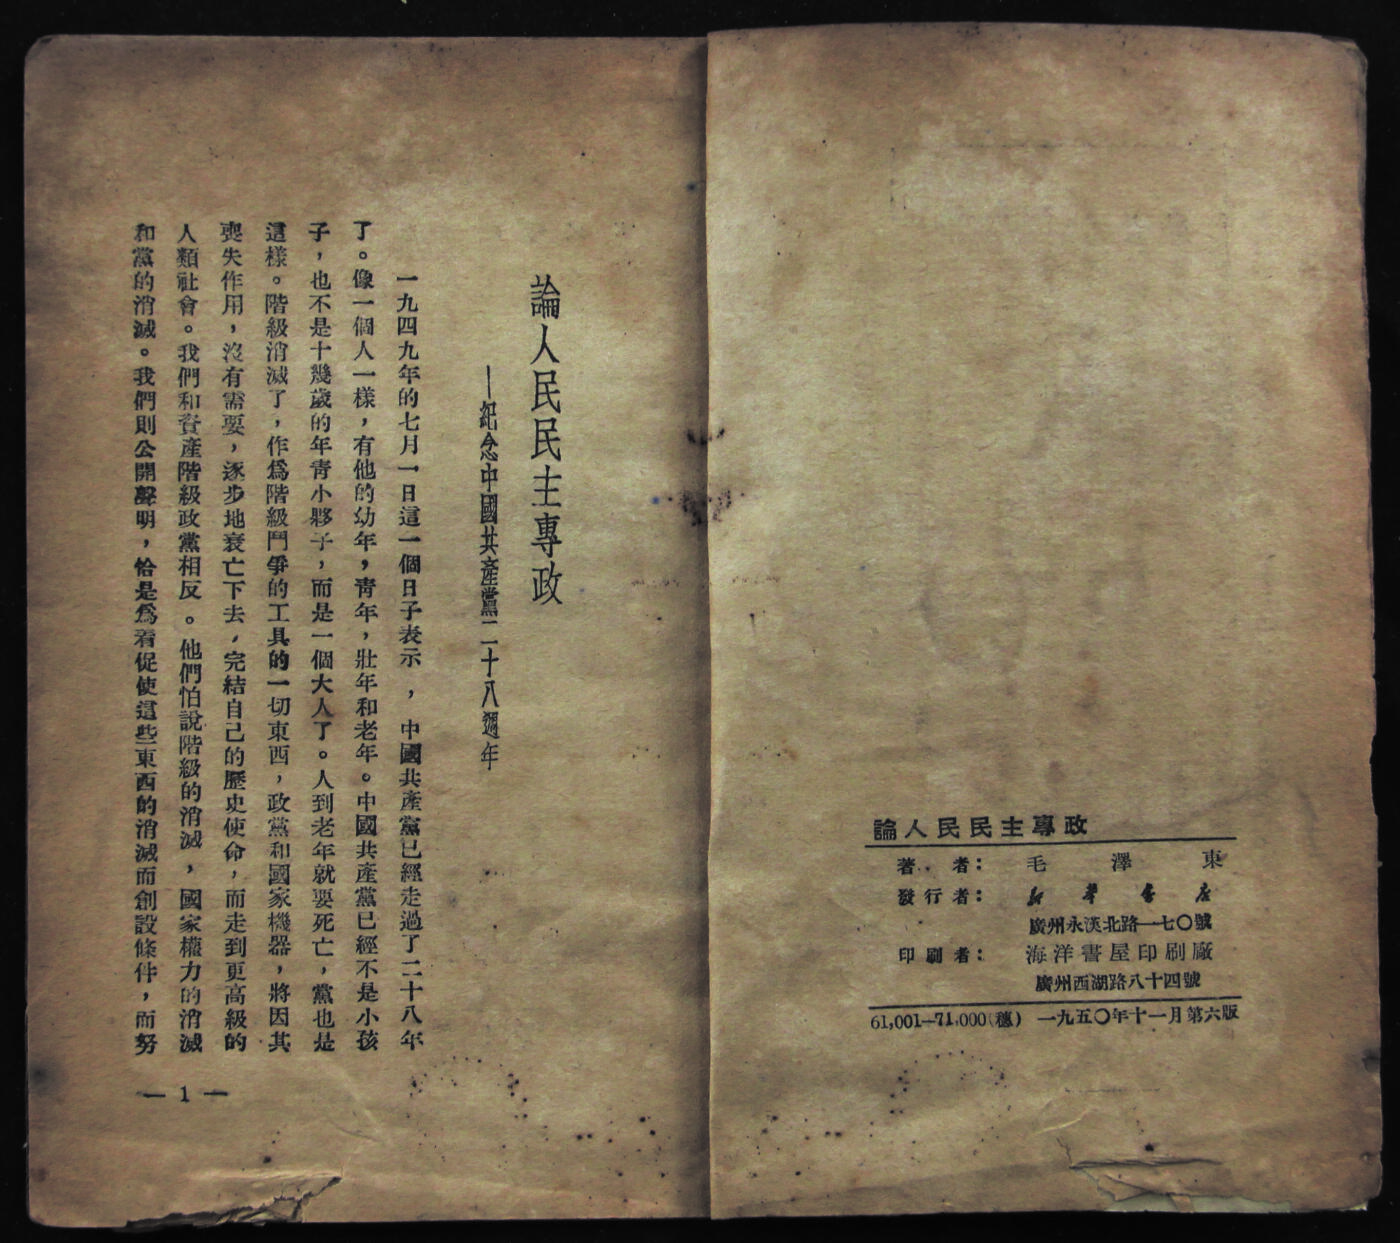 論人民民主專政
著者：毛澤東
發行者：新華書店
廣州永漢北路一七〇號
印刷者：海洋書屋印刷廠
廣州西湖路八十四號
61,001—71,000(穗) 一九五〇年十一月第六版
論人民民主專政
——紀念中國共產黨二十八週年
一九四九年的七月一日這一個日子表示，中國共產黨已經走過了二十八年
了。像一個人一樣，有他的幼年，靑年，壯年和老年。中國共產黨已經不是小孩
子，也不是十幾歲的年靑小夥子，而是一個大人了。人到老年就要死亡，黨也是
這樣。階級消滅了，作爲階級鬥爭的工具的一切東西，政黨和國家機器，將因其
喪失作用，沒有需要，逐步地衰亡下去，完結自己的歷史使命，而走到更高級的
人類社會。我們和資產階級政黨相反。他們怕說階級的消滅，國家權力的消滅
和黨的消滅。我們則公開聲明，恰是爲着促使這些東西的消滅而創設條件，而努
— 1 —